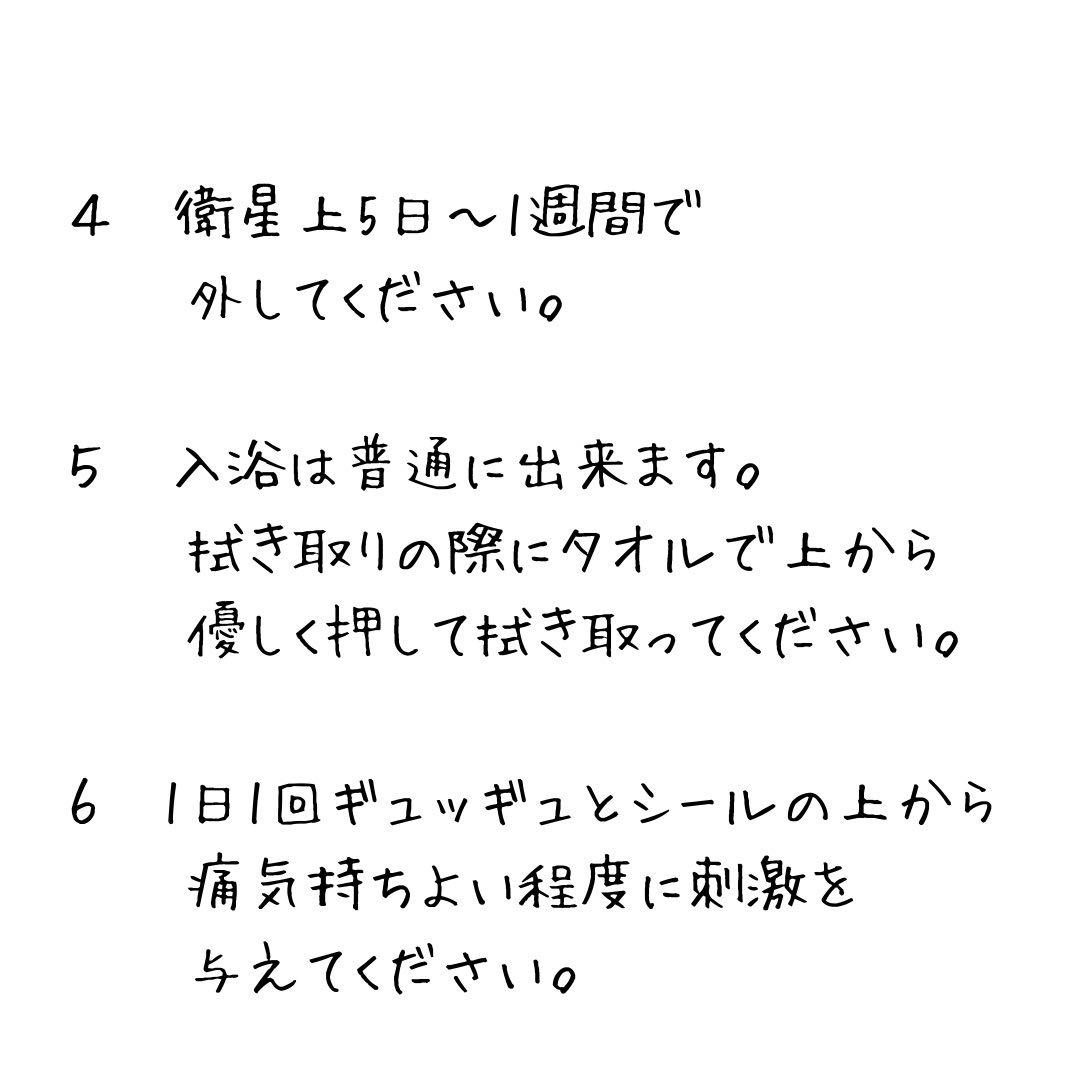 4 衛星上5日〜1週間で
外してください。
5 入浴は普通に出来ます。
拭き取りの際にタオルで上から
優しく押して拭き取ってください。
6 1日1回ギュッギュとシールの上から
痛気持ちよい程度に刺激を
与えてください。